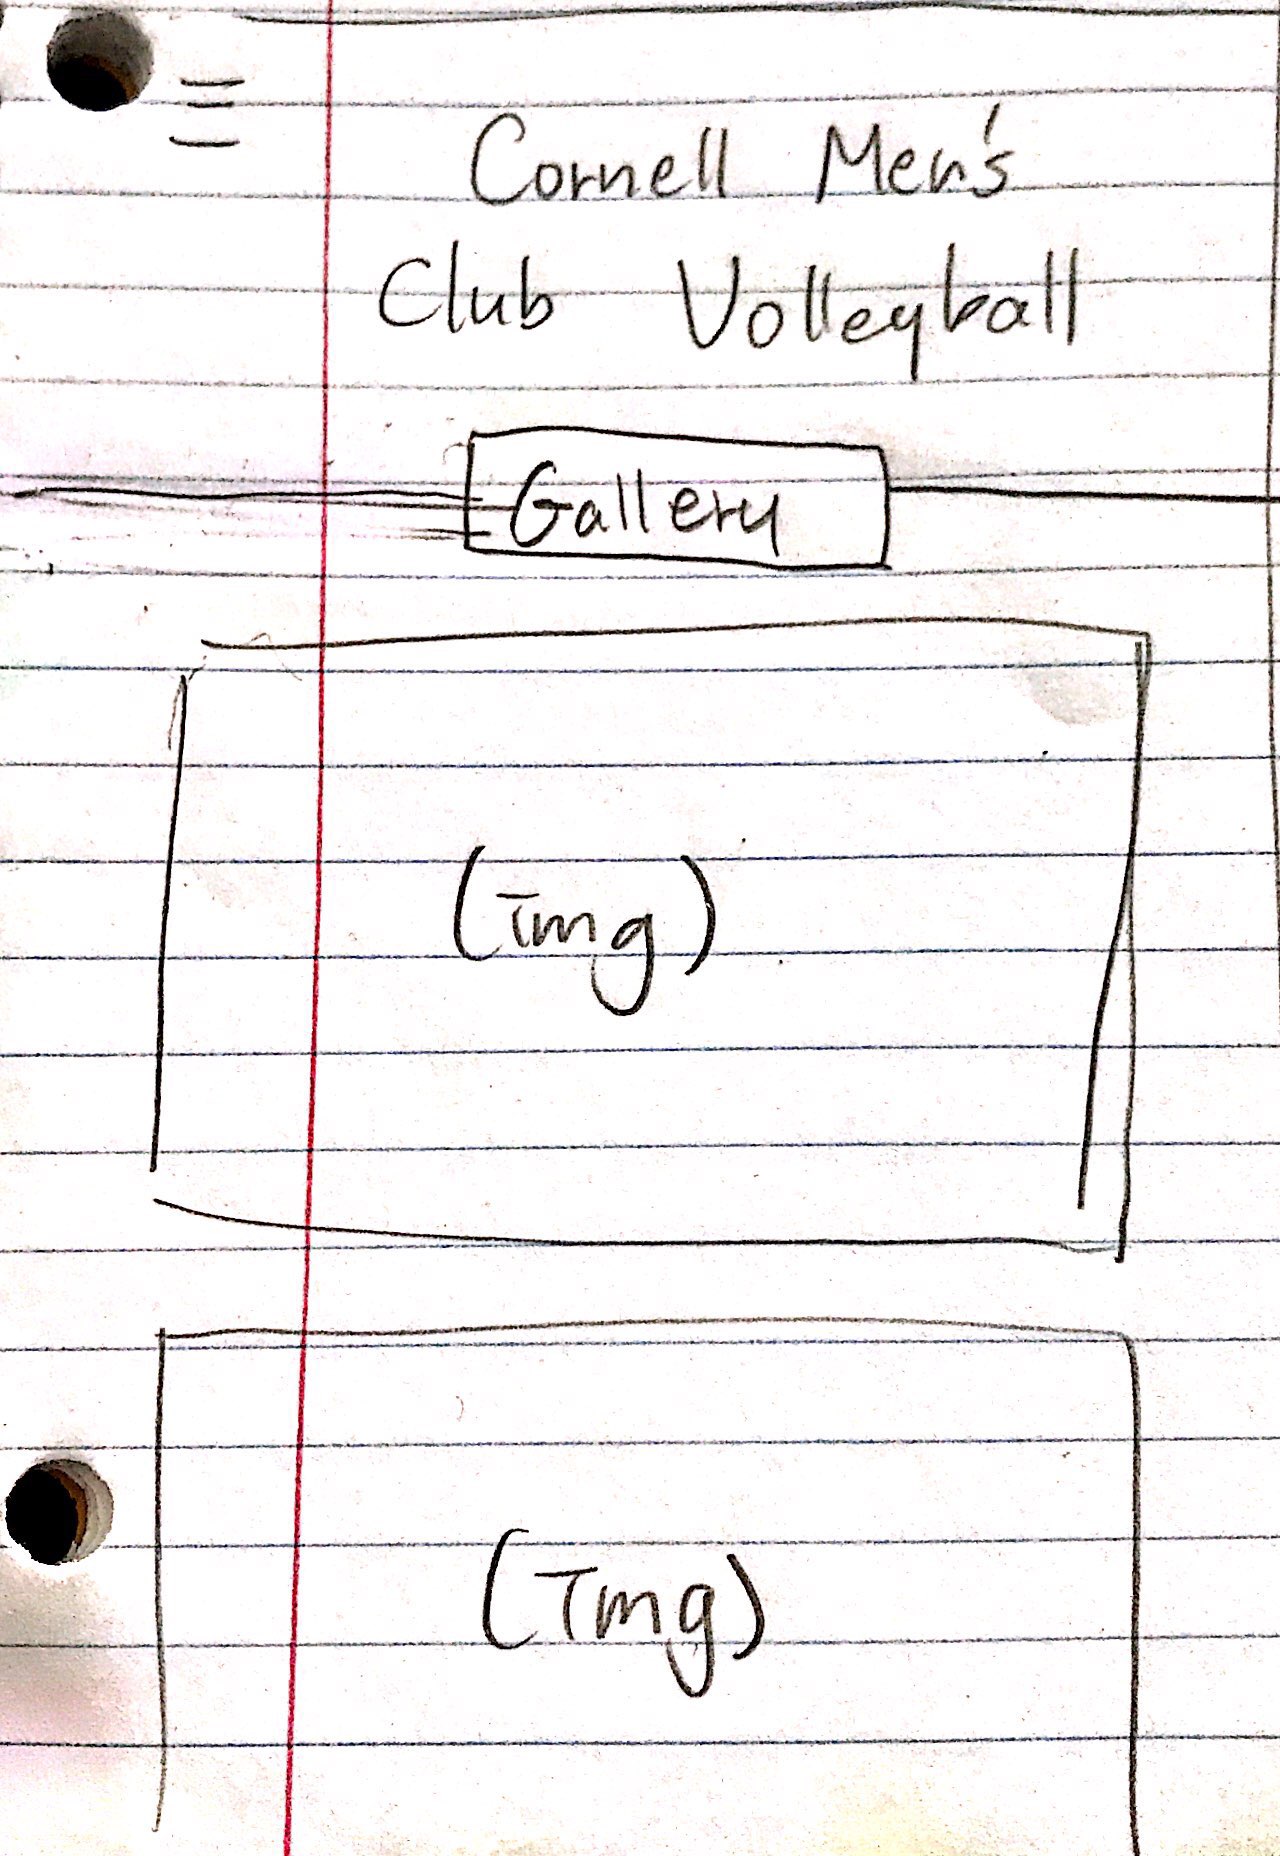 Cornell Men's
Club Volleyball
Gallery
(img)
(img)